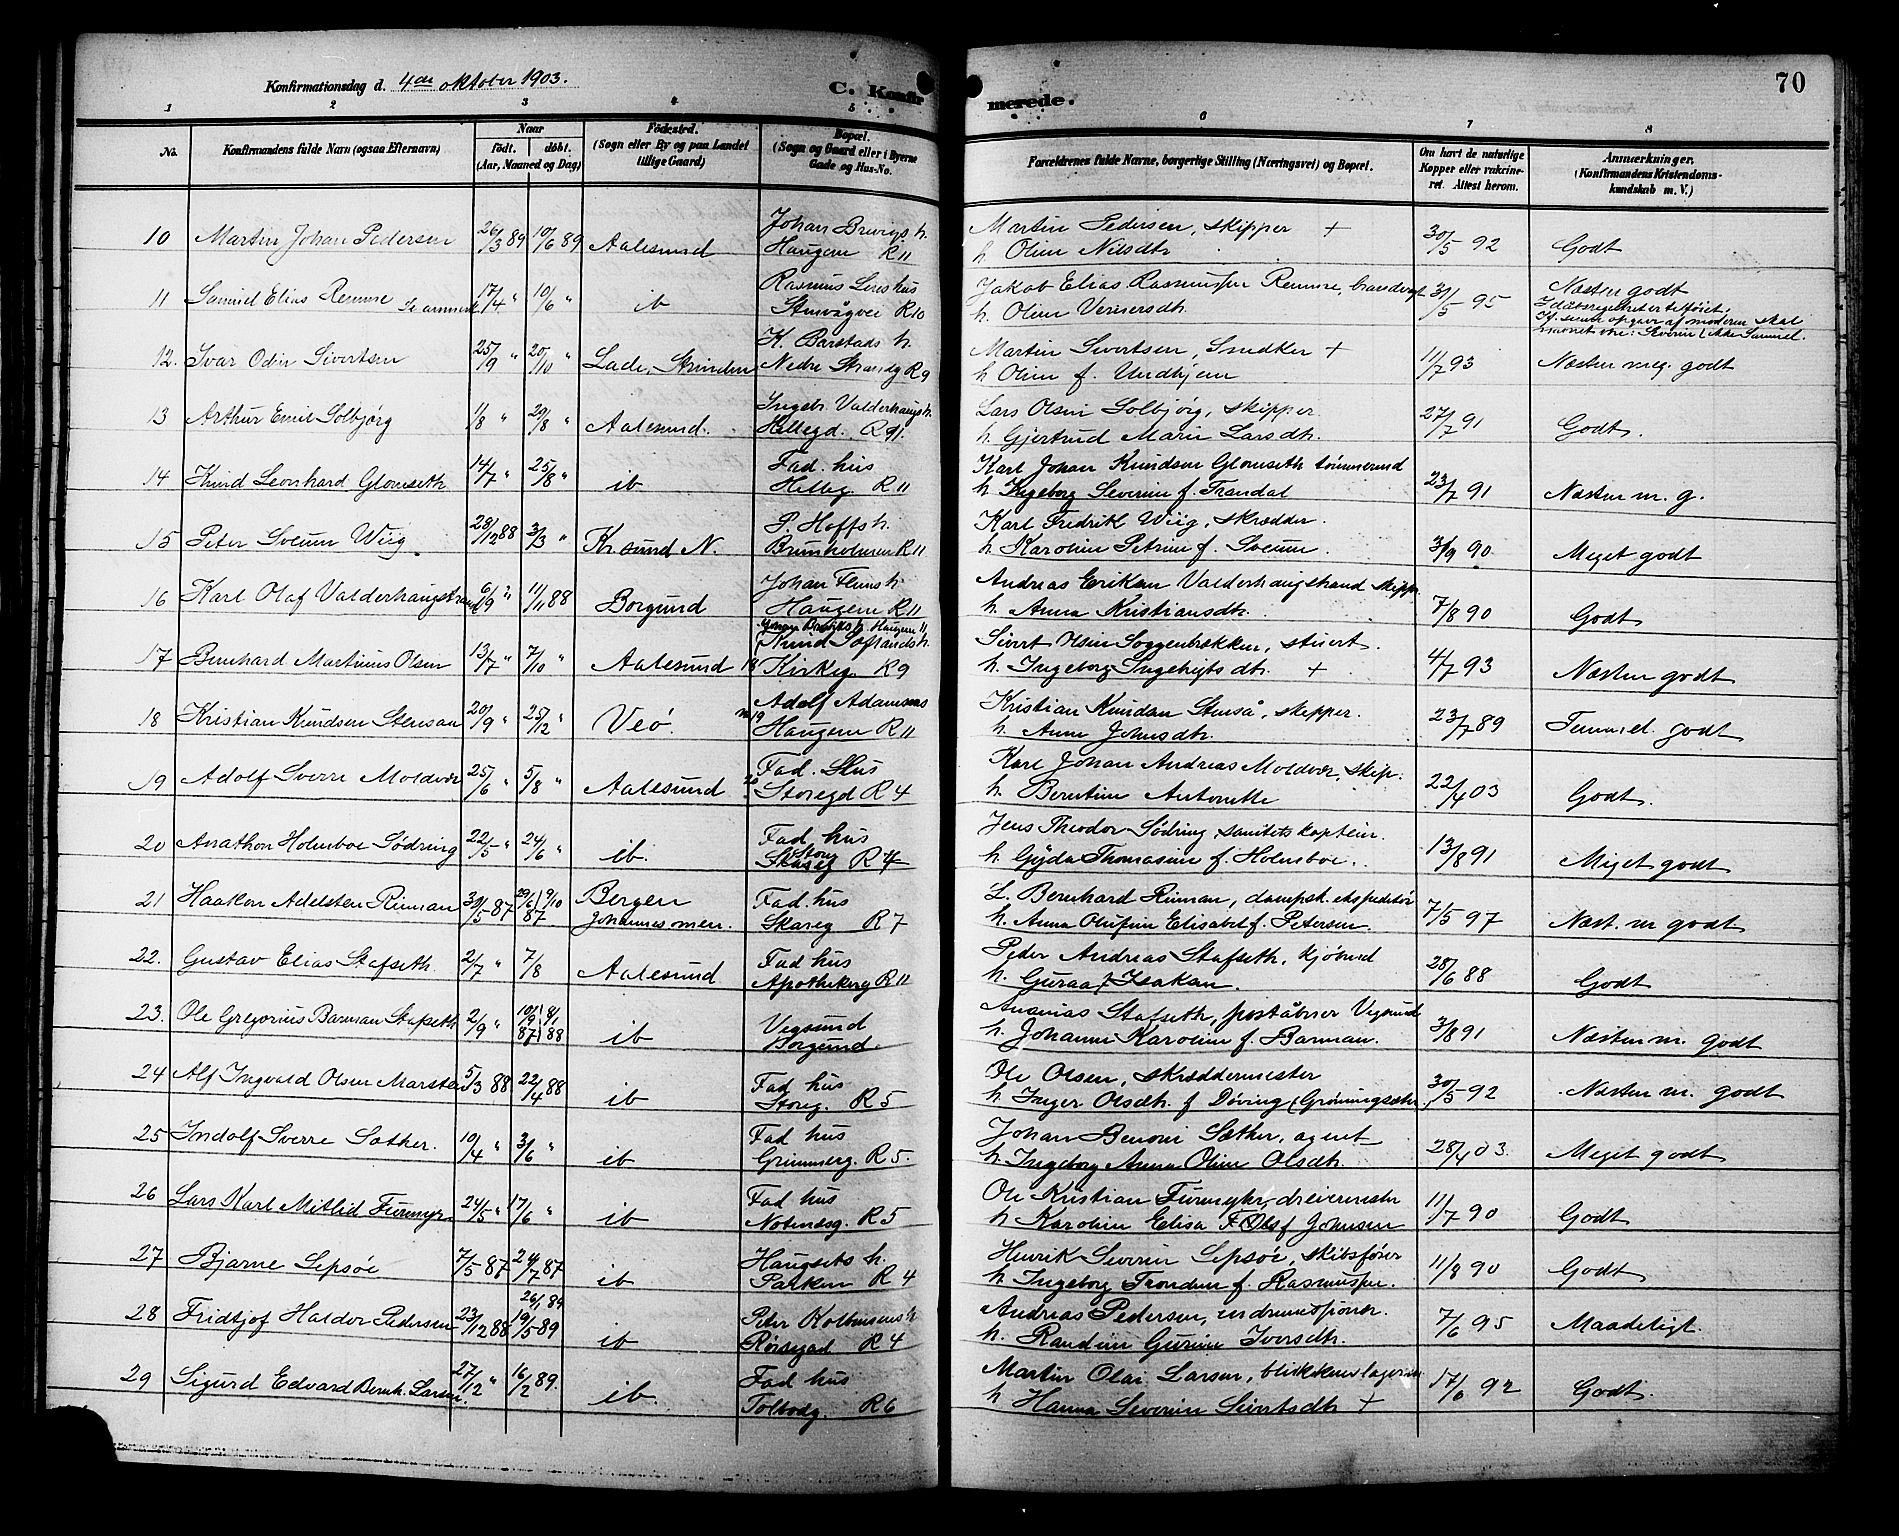 70
Konfirmationsdag d. 4de oktober 1903.
C. Konfir
merede.
1 2 3 4 5 6 7 8
No. Konfirmandens fulde Navn (ogsaa Efternavn) Naar født. døbt. (Aar, Maaned og Dag) Fødested. (Sogn eller By og paa Landet tillige Gaard) Bopæl. (Sogn og Gaard eller i Byerne Gade og Hus-No. Forældrenes fulde Navne, borgerlige Stilling (Næringsvei) og Bopæl. Om havt de naturlige Kopper eller vakcineret. Attest herom. Anmærkninger. (Konfirmandens Kristendomskundskab m. V.)
Johan Brevigs h. Martin Pedersen, skipper +
10 Martin Johan Pedersen 26/3 89 10/6 89 Aalesund Haugen R 11 h. Oline Nilsdtr. 30/5 92 Godt
Rasmus hus Jakob Elias Rasmussen Remme,
11 Samuel Elias Remme 17/4 " 10/6 " ib R 10 h. Oline 31/5 95 Næsten godt
K. Barstads h. Martin Sivertsen, Snedker +
12. Ivar Odin Sivertsen 25/9 " 20/10 " Lade, Strinden Nedre Strandg R 9 h. Oline f. 11/7 93 Næsten meg. godt
Ingebr. Valderhaugs h. Lars Olsen Solbjørg, skipper
13 Arthur Emil Solbjørg 1/8 " 29/8 " Aalesund. Hellegd. R 91. h. Gjertrud Marie Larsdtr. 27/7 91 Godt.
Fad. hus Karl Johan Knudsen Glomseth tømmermd
14 Knud Leonhard Glomseth 14/7 " 25/8 " ib Helleg. R 11 h. Ingeborg Severine f. Trandal 23/7 91 Næsten m. g.
P. Hoffs h. Karl Fredrik Wiig, skrædder.
15 Peter Sveum Wiig 28/12 88 3/3 " Kr.sund N. Brunholmen R 11 h. Karoline Petrine f. Sveum. 3/9 90 Meget godt
Johan Flems h. Andreas Eriksen Valderhaugstrand skipp.
16 Karl Olaf Valderhaugstrand 6/9 " 11/11 88 Borgund Haugen R 11 h. Anna Kristiansdtr. 7/8 90 Godt
Johan Brevigs h. Haugen 11
Knud Søflands h. Sivert Olsen Soggenbekken, stuert.
17 Bernhard Martinus Olsen 13/7 " 7/10 " Aalesund 18 Kirkeg. R 9 h. Ingeborg dtr. + 4/7 93 Næsten godt
Adolf Adamsens Kristian Knudsen Stenså, skipper.
18 Kristian Knudsen Stensaa 20/9 " 25/12 " Veø 19 Haugen R 11 h. Anne Johnsdtr. 23/7 89 Temmel. godt
Fad. Hus Karl Johan Andreas Moldvær, skip.
19 Adolf Sverre Moldvær 25/6 " 5/8 " Aalesund 20 Storegd R 4 h. Berntine Antonette 22/4 03 Godt.
Fad hus Jens Theodor Sødring, sanitetskaptein.
20 Anathon Holmboe Sødring 22/5 " 24/6 " ib. Storg R 4 h. Gyda Thomasine f. Holmboe. 13/8 91 Meget godt
21 Haakon Adelsten Riiman 30/5 87 29/6 87 9/10 Bergen Fad. hus L. Bernhard Riiman, dampsk. ekspeditør
Johannes men. Skareg R 7 h. Anna Olufine Elisabet f. Petersen. 7/5 97 Næst. m godt
Fad hus Peder Andreas Stafseth, kjøbmd
22. Gustav Elias Stafseth. 2/7 " 7/8 Aalesund Apothekerg R 11 h. Guraa f. Isaksen. 28/6 88 Godt
23. Ole Gregorius Barman Stafseth 2/9 " 10/9 87 8/1 88 ib Vegsund Ananias Stafseth, poståbner Vegsund
Borgund. h. Johanne Karoline f. Barman. 3/8 91 Næsten m. godt
24 Alf Ingvald Olsen Marsten 5/3 88 22/4 88 ib Fad hus Ole Olsen, skræddermester
Storeg. R 5 h. Inger Olsdtr. f Døving (Grønningsæter. 30/5 92 Næsten m. godt
25 Indolf Sverre Sæther. 10/4 " 3/6 " ib Fad hus Johan Benoni Sæther, agent
Grimmerg. R 5. h. Ingeborg Anna Oline Olsdtr. 28/4 03. Meget godt
26 Lars Karl Mitlid Furmyr. 24/5 " 17/6 " ib Fad hus Ole Kristian Furmyhr, dreiermester
Notenæsg. R 5 h Karoline Elisa F. Ols f Johnsen 11/7 90 Godt
27 Bjarne Sepsøe 7/5 87 24/7 87 ib Haugsets h. Henrik Severin Sepsøe, skibsfører
Parken R 4 h Ingeborg Trondine f. Rasmussen. 11/8 90 Godt
28 Fridtjof Haldor Pedersen 23/12 88 26/1 89 19/5 89 ib Peter h Andreas Pedersen,
Rørsgad R 4 h. Randine Gurine Iversdtr. 7/6 95 Maadeligt.
29 Sigurd Edvard Bernh. Larsen. 27/12 " 16/2 89. ib. Fad hus Martin Olai Larsen,
Tolbodg. R 6 h Hanna Severine Sivertsdtr + 17/6 92 Godt.